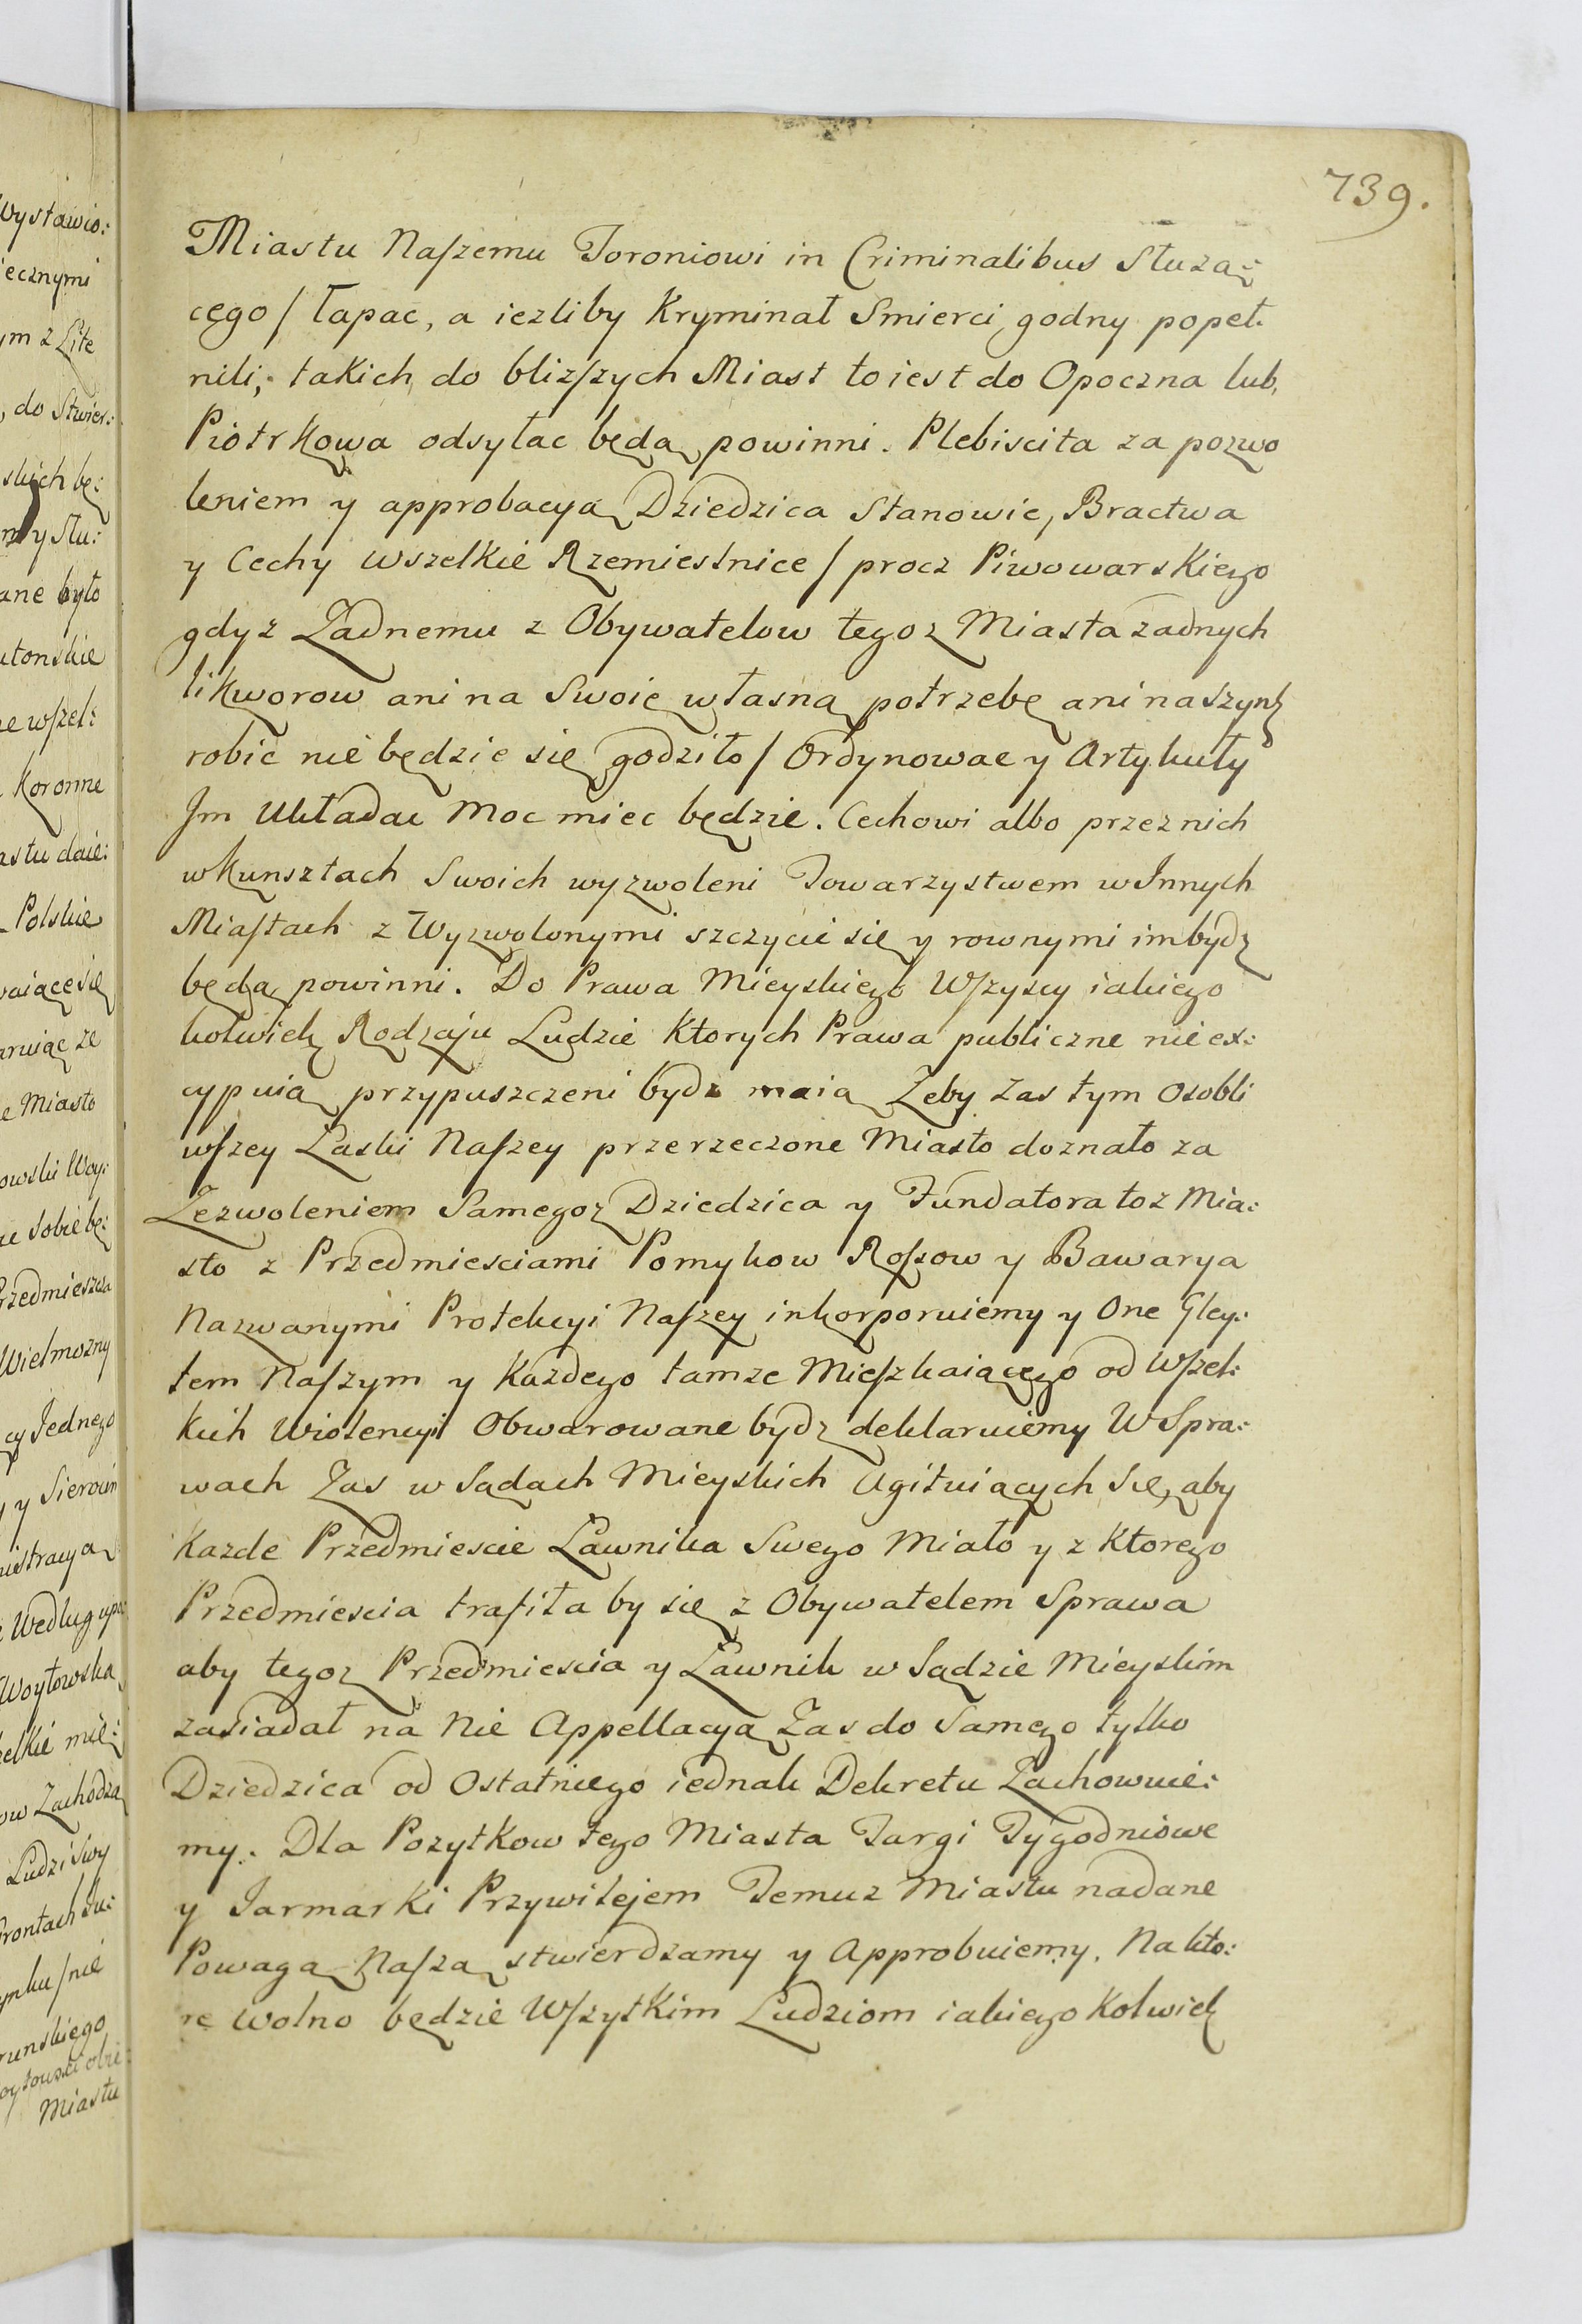 739.
Miastu Naszemu Toroniowi in Criminalibus Słuzą:
cego / łapac, a iezliby Kryminał Smierci godny popeł:
nili, takich do blizszych Miast to iest do Opoczna lub
Piotrkowa odsyłac będą powinni. Plebiscita za pozwo
leniem y approbacyą Dziedzica Stanowic, Bractwa
y Cechy wszelkie Rzemieslnice / procz Piwowarskiego
gdyz Zadnemu z Obywatelow tegoz Miasta zadnych
likworow ani na Swoię własną potrzebę ani na szynk
robic nie będzie się godziło / Ordynowac y Artykuły
Jm Układac Moc miec będzie. Cechowi albo przez nich
w Kunsztach Swoich wyzwoleni Towarzystwem w Innych
Miastach z Wyzwolonymi szczycic się y rownymi im bydz
będą powinni. Do Prawa Mieyskiego Wszyscy iakiego
kolwiek Rodzaju Ludzie Ktorych Prawa publiczne nie ex:
cypuią przypuszczeni bydz maią Zeby zas tym Osobli
wszey Łaski Naszey przerzeczone Miasto doznało za
Zezwoleniem Samegoz Dziedzica y Fundatora toz Mia:
sto z Przedmiesciami Pomykow Rossow y Bawarya
Nazwanymi Protekcyi Naszey inkorporuiemy y One Gley:
tem Naszym y Kazdego tamze Mieszkaiącego od Wszel:
kich Wiolencyi Obwarowane bydz deklaruiemy W Spra:
wach Zas w Sądach Mieyskich Agituiących się, aby
Kazde Przedmiescie Ławnika Swego Miało y z Ktorego
Przedmiescia trafiła by się z Obywatelem Sprawa
aby tegoz Przedmiescia y Ławnik w Sądzie Mieyskim
zasiadał na Nie Appellacyą Zas do Samego tylko
Dziedzica od Ostatniego iednak Dekretu Zachowuie:
my. Dla Pozytkow tego Miasta Targi Tygodniowe
y Jarmarki Przywilejem Temuz Miastu nadane
Powagą Naszą stwierdzamy y Approbuiemy. Na kto:
re wolno będzie Wszytkim Ludziom iakiego Kolwiek